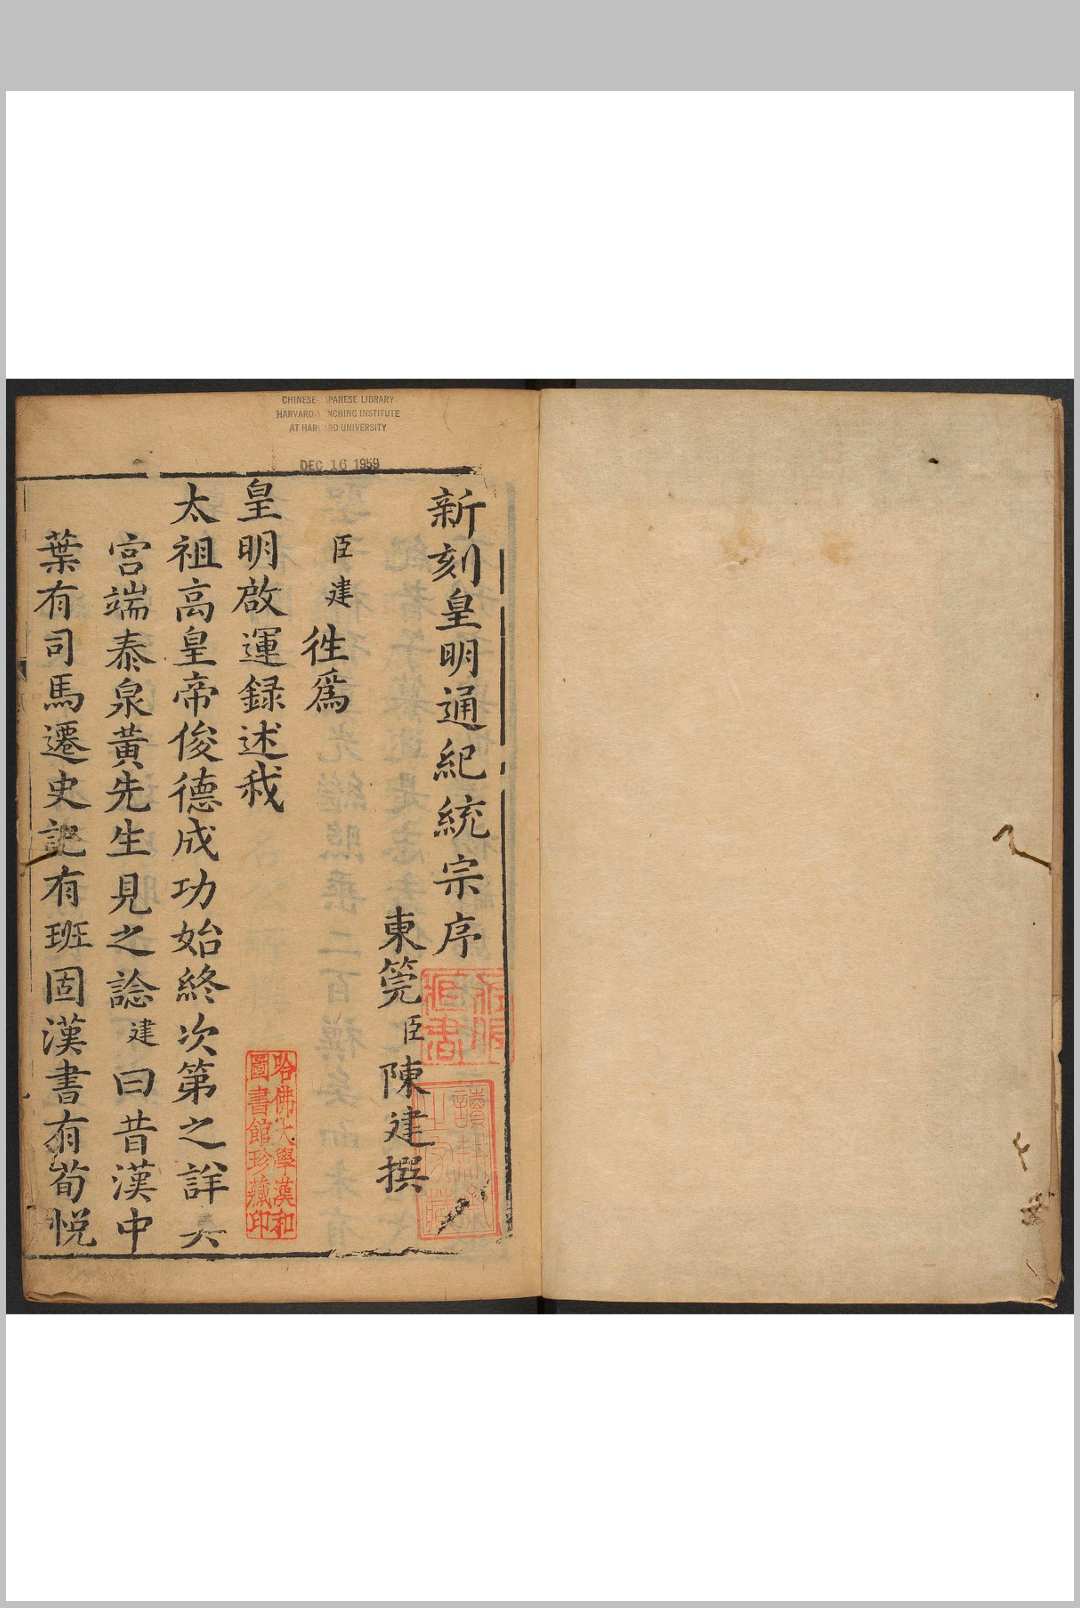 CHINESE JAPANESE LIBRARY
HARVARD YENCHING INSTITUTE
AT HARVARD UNIVERSITY
DEC 16 1959
新刻皇明通紀統宗序
東筦臣陳建撰
臣建徃爲
皇明啟運録述我
太祖高皇帝俊德成功始終次第之詳矣
宮端泰泉黃先生見之諗建曰昔漢中
葉有司馬遷史記有班固漢書有荀悅
哈佛大學漢和
圖書館珍藏印